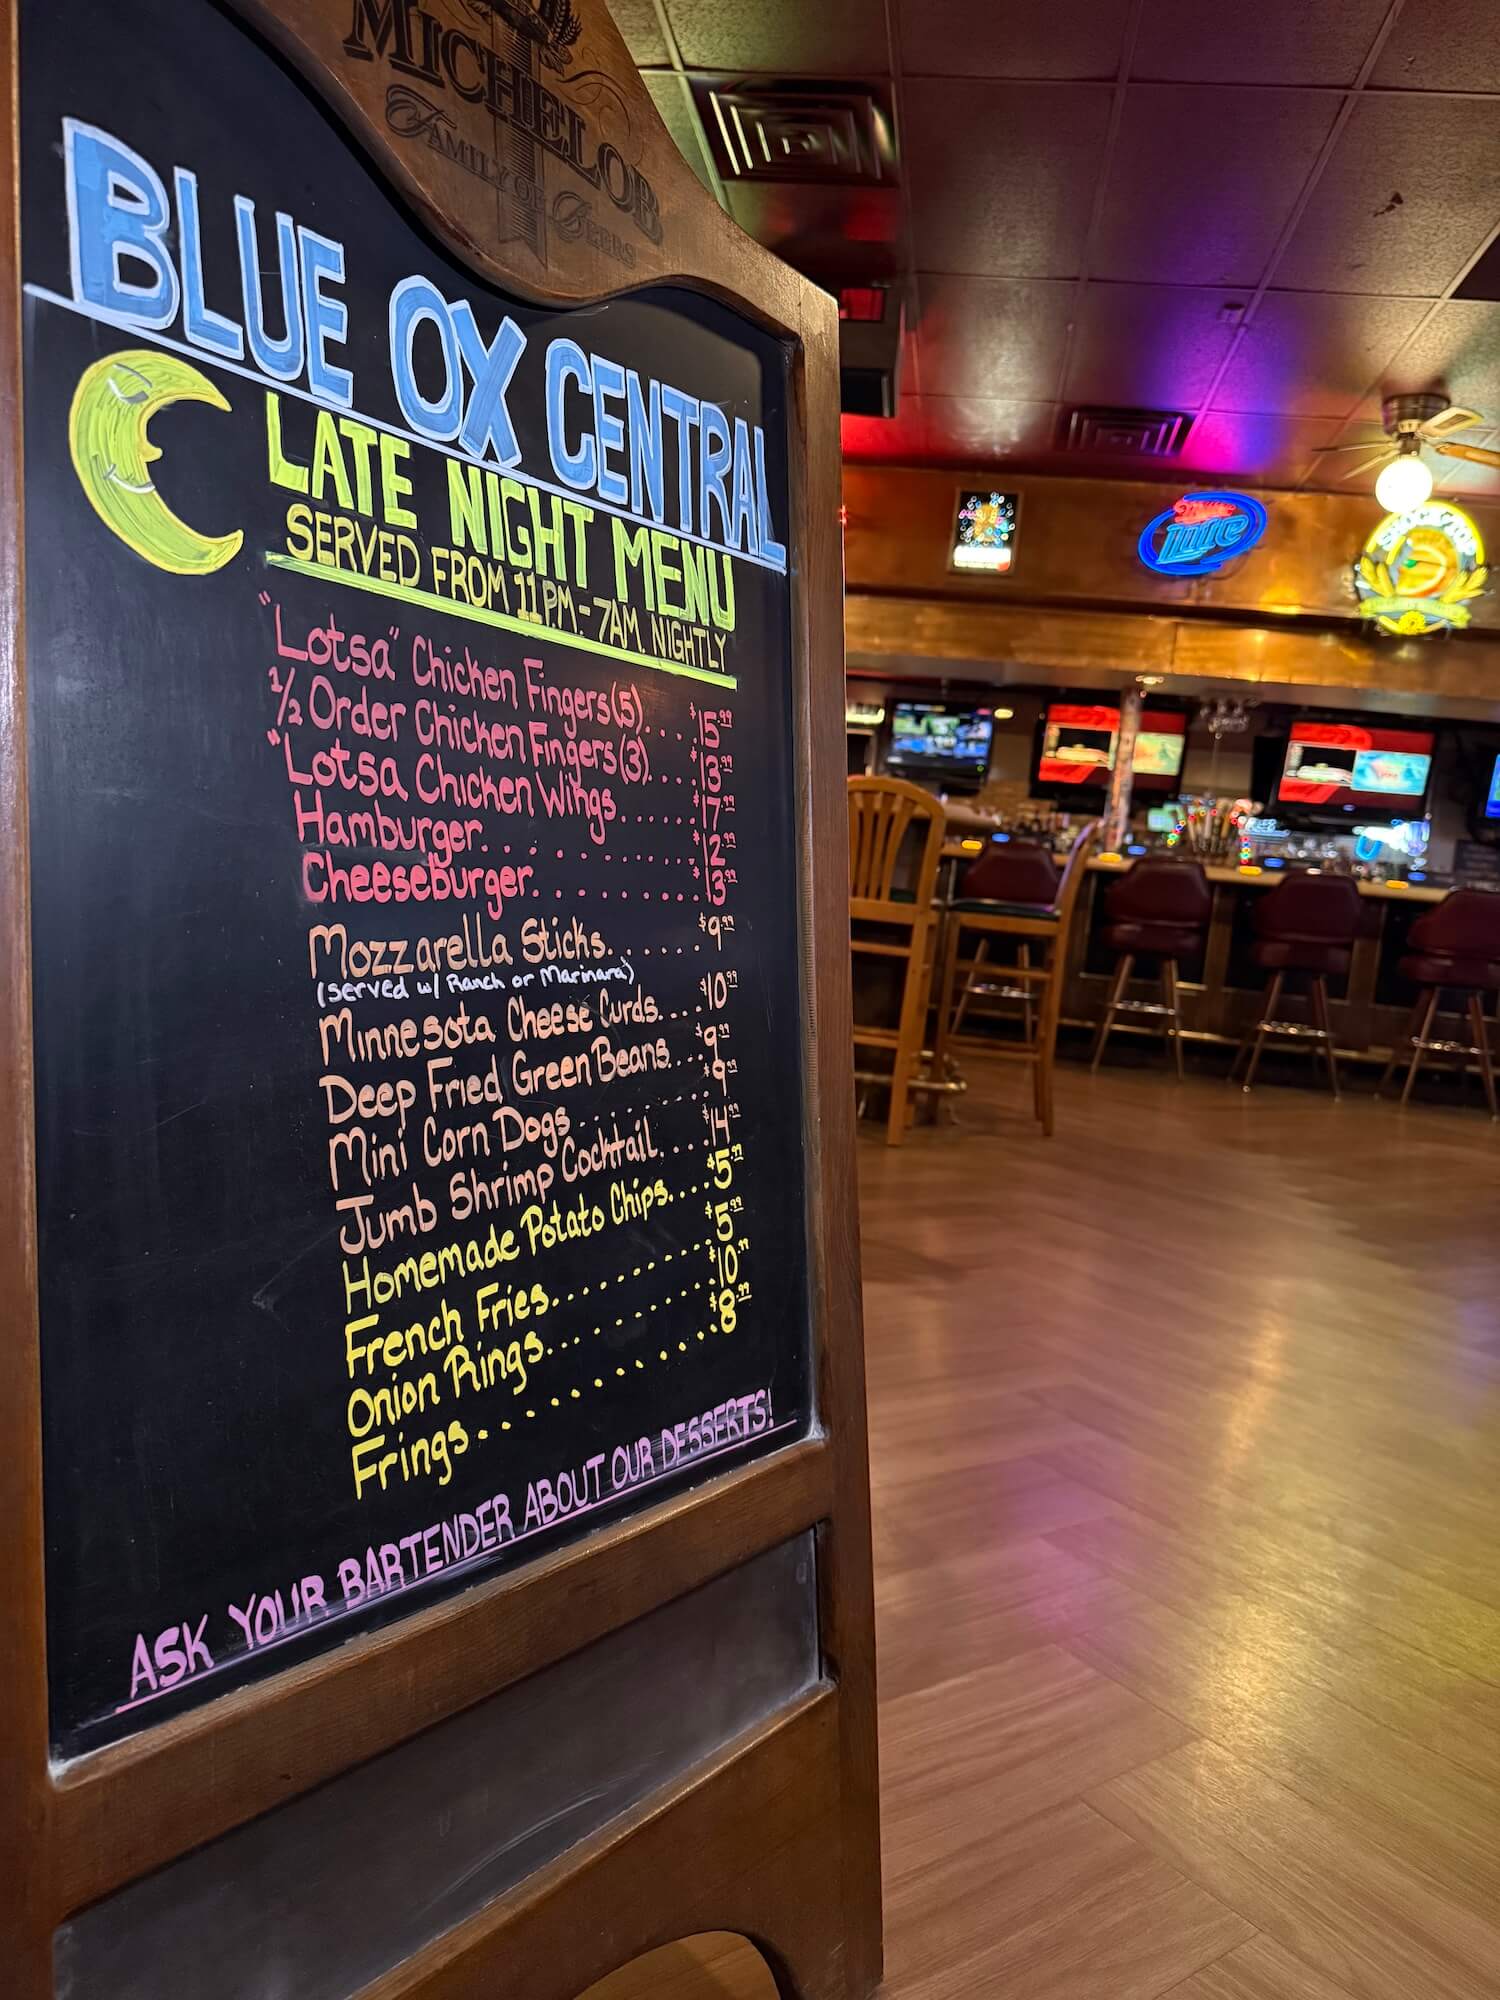 MICHELOB
FAMILY OF BEERS
BLUE OX CENTRAL
LATE NIGHT MENU
SERVED FROM 11PM - 7AM. NIGHTLY
"Lotsa" Chicken Fingers(5).... $15.99
1/2 Order Chicken Fingers(3).... $13.99
"Lotsa Chicken Wings...... $17.99
Hamburger.......... $12.99
Cheeseburger......... $13.99
Mozzarella Sticks...... $9.99
(served w/ Ranch or Marinara)
Minnesota Cheese Curds.... $10.99
Deep Fried Green Beans.... $9.99
Mini Corn Dogs........ $9.99
Jumb Shrimp Cocktail.... $14.99
Homemade Potato Chips.... $5.99
French Fries.......... $5.99
Onion Rings.......... $10.99
Frings............ $8.99
ASK YOUR BARTENDER ABOUT OUR DESSERTS!
Miller
Lite
SHOCK TOP